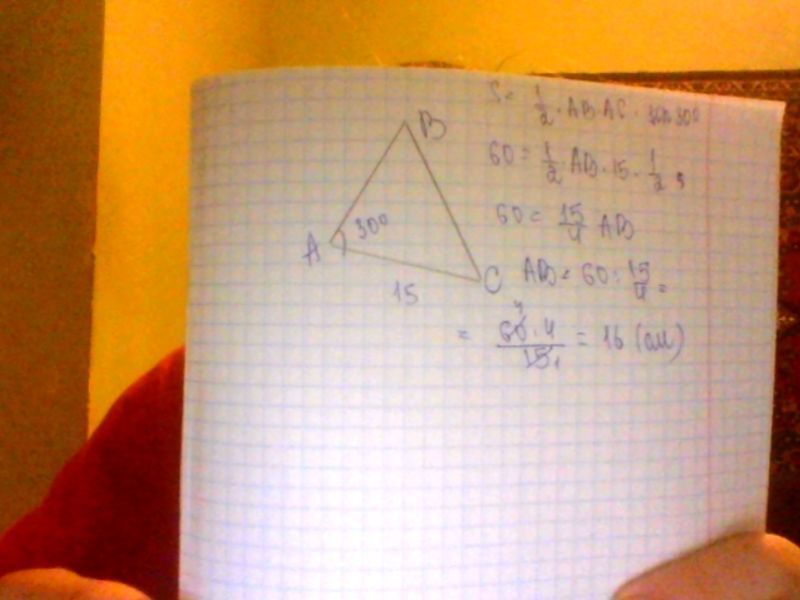 B
A
30°
15
C
S = 1/2 · AB · AC · sin 30°
60 = 1/2 · AB · 15 · 1/2 ;
60 = 15/4 AB
AB = 60 : 15/4 =
= 60 · 4 / 15 = 16 (см)
4
1